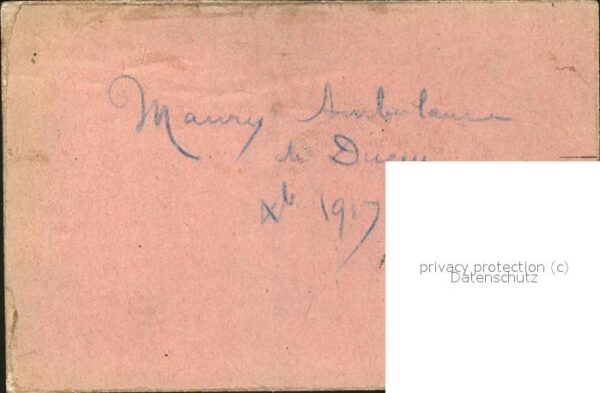 Maury Ambulance
de Ducey
Xb 1917
privacy protection (c)
Datenschutz